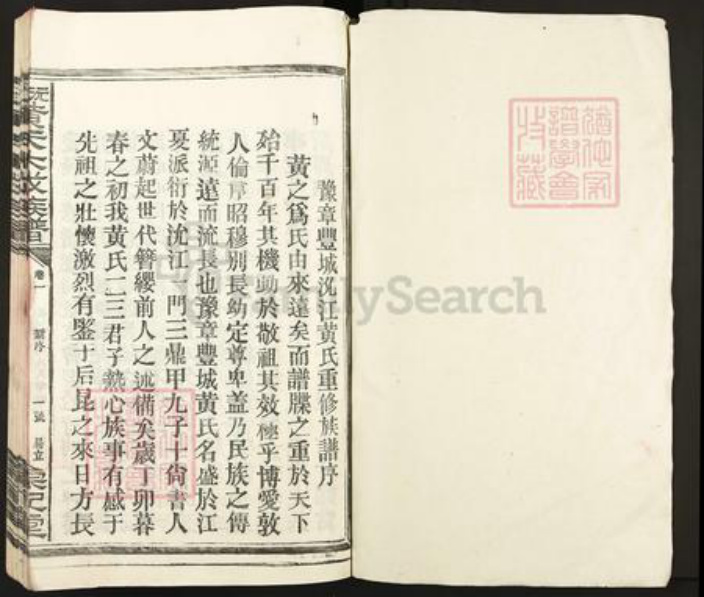 豫章豐城沈江黄氏重修族譜序
黄之爲氏由來遠矣而譜牒之重於天下
始千百年其機動於敬祖其效極乎博愛敦
人倫序昭穆别長幼定尊卑蓋乃民族之傳
統源遠而流長也豫章豐城黄氏名盛於江
夏派衍於沈江一門三鼎甲九子十尙書人
文蔚起世代簪纓前人之述備矣歲丁卯暮
春之初我黄氏二三君子熱心族事有感于
先祖之壯懷激烈有鑒于后昆之來日方長
大成族譜
卷一
一號
MySearch
譜學會
收藏